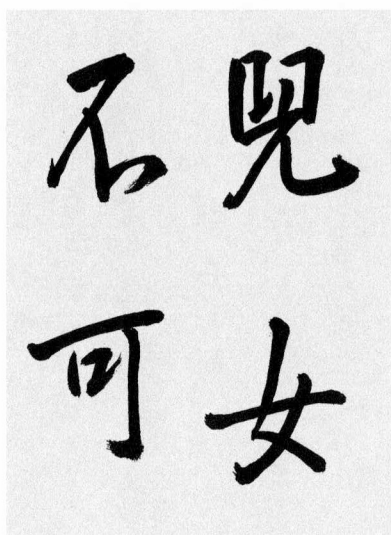 兒女
不可